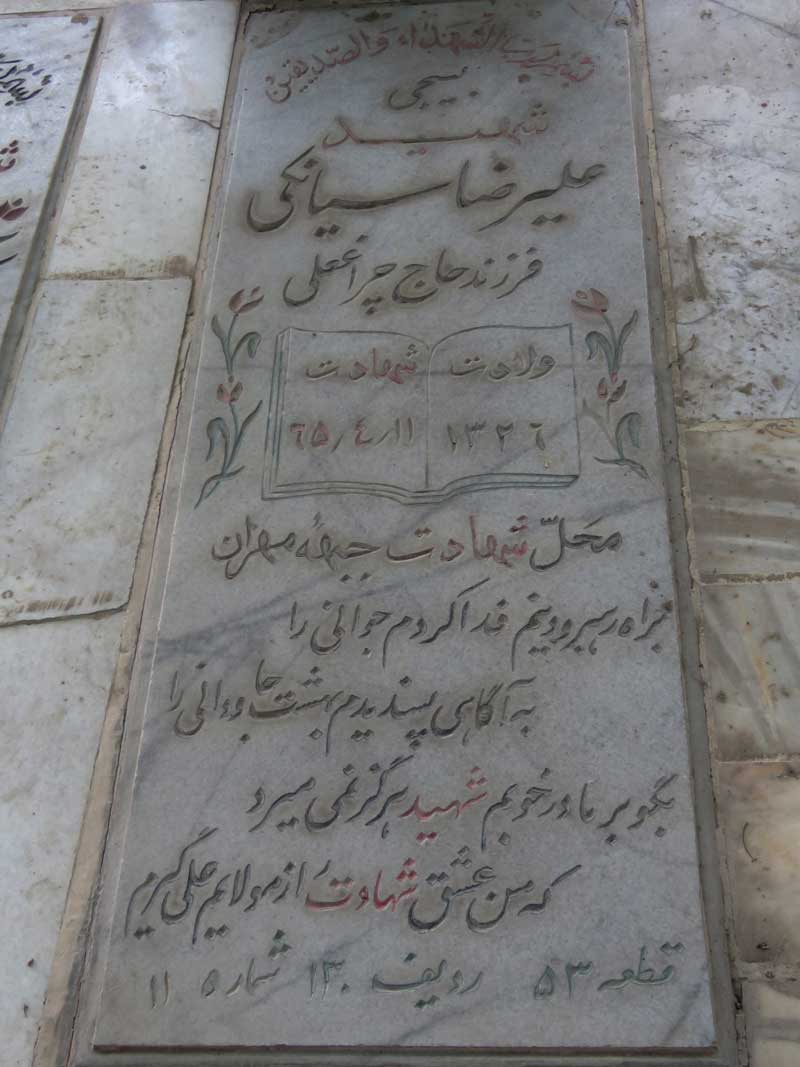 بسم رب الشهداء والصدیقین
بسیجی
شهید
علیرضا سیانکی
فرزند حاج چراغعلی
ولادت شهادت
۱۳۲٦ ٦۵/٤/۱۱
محلّ شهادت جبههٔ مهران
براه رهبر و دینم فدا کردم جوانی را
به آگاهی پسندیدم بهشت جاودانی را
بگو بر مادر خوبم شهید هرگز نمی میرد
که من عشق شهادت را از مولایم علی گیرم
قطعه ۵۳ ردیف ۱۳۰ شماره ۱۱